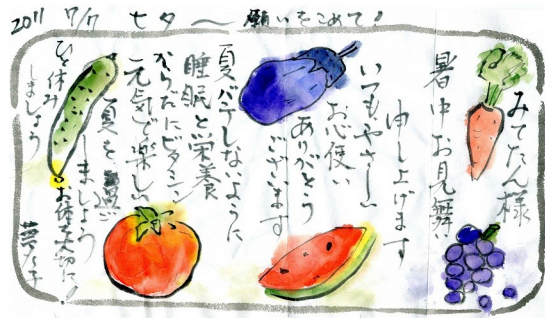 2011 7/7 七夕〜願いをこめて!
みてたん様
暑中お見舞い
申し上げます
いつもやさしい
お心使い
ありがとう
ございます
夏バテしないように
睡眠と栄養
からだにビタミン
元気で楽しい
夏を過ごし
ましょう
お体大切に!
ひと休み
しましょう